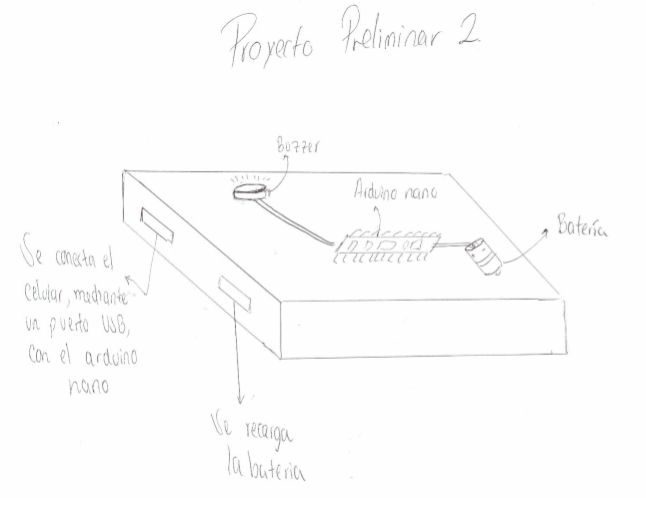 Proyecto Preliminar 2
Buzzer
Arduino nano
Batería
Se conecta el
celular, mediante
un puerto USB,
con el arduino
nano
Se recarga
la bateria